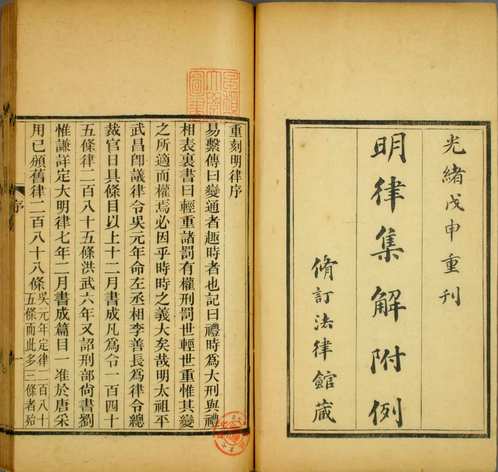 光緒戊申重刊
明律集解附例
脩訂法律館藏
重刻明律序
易繫傳曰變通者趣時者也記曰禮時為大刑與禮
相表裏書曰輕重諸罰有權刑罰世輕世重惟其變
之所適而權焉必因乎時時之義大矣哉明太祖平
武昌卽議律令吳元年命左丞相李善長為律令總
裁官日具條目以上十二月書成凡為令一百四十
五條律二百八十五條洪武六年又詔刑部尚書劉
惟謙詳定大明律七年二月書成篇目一準於唐采
用已頒舊律二百八十八條吳元年定律二百八十五條而此多三條者殆
序
一